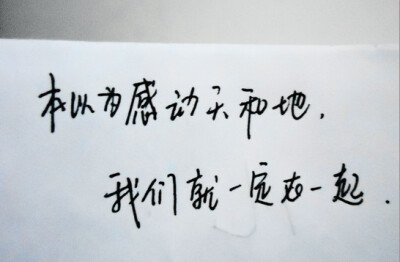 本以为感动天和地，
我们就一定在一起.